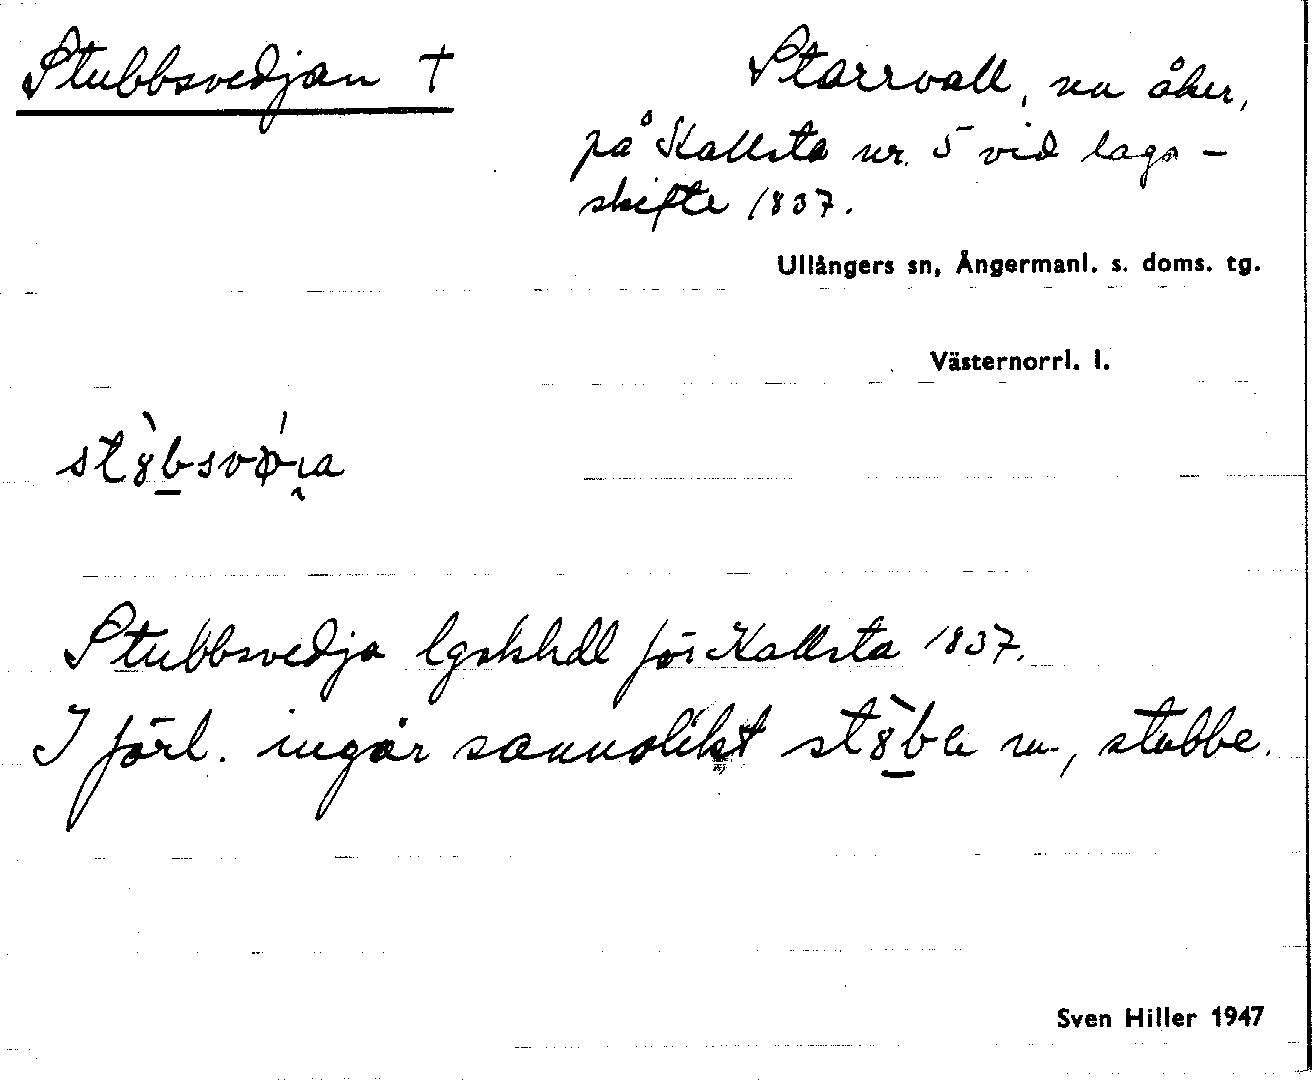 Stubbsvedjan †
Starrvall, nu åker,
på Kallsta nr. 5 vid laga-
skifte 1837.
Ullångers sn, Ångermanl. s. doms. tg.
Västernorrl. l.
Stubbsvedja lgskhdl för Kallsta 1837.
I förl. ingår sannolikt st8̀b̲e m., stubbe.
Sven Hiller 1947